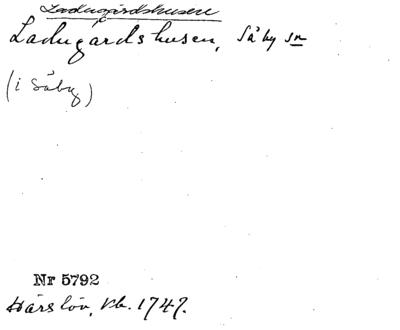 Ladugårdshusen
Ladugårdshusen, Såby sn
(i Såby)
Nr 5792
Härslöv, Vb. 1747.